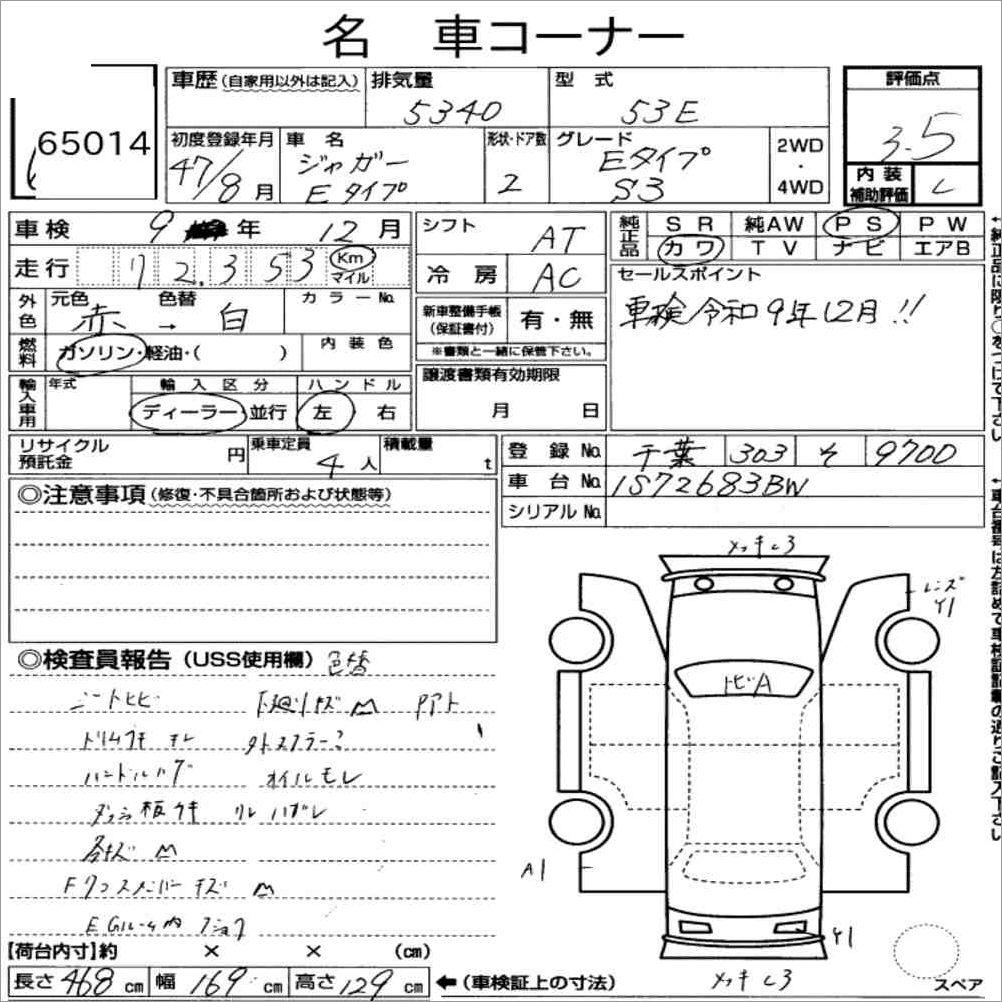 名 車コーナー
65014
車歴(自家用以外は記入)
排気量
5340
型式
53E
評価点
3.5
初度登録年月
47/8月
車名
ジャガー
Eタイプ
形状・ドア数
2
グレード
Eタイプ
S3
2WD
・
4WD
内装
補助評価
C
車検 9 年 12月
走行 72,353 Km
マイル
シフト AT
冷房 AC
純正品
SR 純AW PS PW
カワ TV ナビ エアB
セールスポイント
車検令和9年12月!!
外色
元色 色替 カラーNo.
赤 → 白
燃料
ガソリン・軽油・( )
内装色
新車整備手帳
(保証書付)
有・無
※書類と一緒に保管下さい。
譲渡書類有効期限
月 日
輸入車用
年式
輸入区分
ディーラー 並行
ハンドル
左 右
リサイクル
預託金 円
乗車定員
4人
積載量
t
登録No. 千葉 303 そ 9700
車台No. 1S72683BW
シリアルNo.
◎注意事項(修復・不具合箇所および状態等)
◎検査員報告(USS使用欄) 色替
シートヒビ 下廻りキズ M Pアト
トリムウキ キレ
ハンドルハゲ オイルモレ
ダッシュ板ウキ ワレ ハガレ
各キズ M
メッキC3
レンズ
Y1
トビA
A1
Y1
メッキC3
スペア
【荷台内寸】約 × × (cm)
長さ 468 cm 幅 169 cm 高さ 129 cm
←(車検証上の寸法)
←純正品に限り○をつけて下さい
←車台番号は左詰めで車検証記載の通りご記入下さい